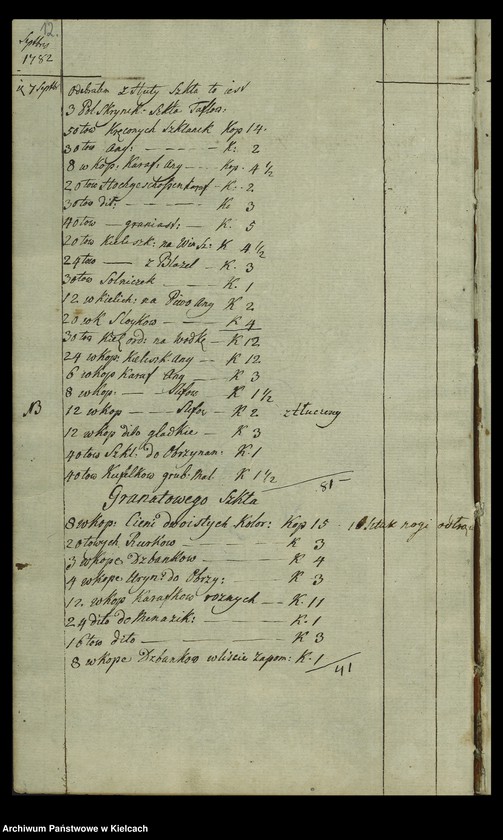 12.
Septbris
1782
d. 7 Septbr Odebrałem z Huty Szkła to iest
3 Pół Skrynik. Szkła Taflow:
50 tow Kręconych Szklanek Kop 14.
30 tow Ang: — K: 2
8 w Kop: Karaf: Ang — Kop. 4 1/2
20 tow Karaf — K. 2
30 tow dit: — K: 3
40 tow — graniast: — K. 5
20 tow Kieliszk: na Wino: K 4 1/2
24 tow — z — K. 3
30 tow Solniczek — K. 1
12 w kielich: na Piwo Ang K 2
20 w K Słoykow — K 4
30 tow Kiel ord: na Wodkę — K 12
24 w Kop: Kieliszk Ang — K 12
6 w kop Karaf Ang — K 3
8 w kop: — Stafow K 1 1/2
NB 12 w kop — Stafow — K 2 ztłuczony
12 w kop dito gładkie — K 3
40 tow Szkl: do Obrzynan: K. 1
40 tow Kufelkow grub: Mal. K 1 1/2
81
Granatowego Szkła
8 w kop: Cieni dwoistych Kolor: Kop 15 nogi
20 towych Rurkow — K 3
3 w kope Dzbankow — K 4
4 w kope Uryn: do Obrzy: — K 3
12. w kop Karafkow roznych — K. 11
24 dito do Menazik: — K. 1
16 tow dito — K 3
8 w kope Dzbankow w liscie Zapom: K. 1
41
Archiwum Państwowe w Kielcach